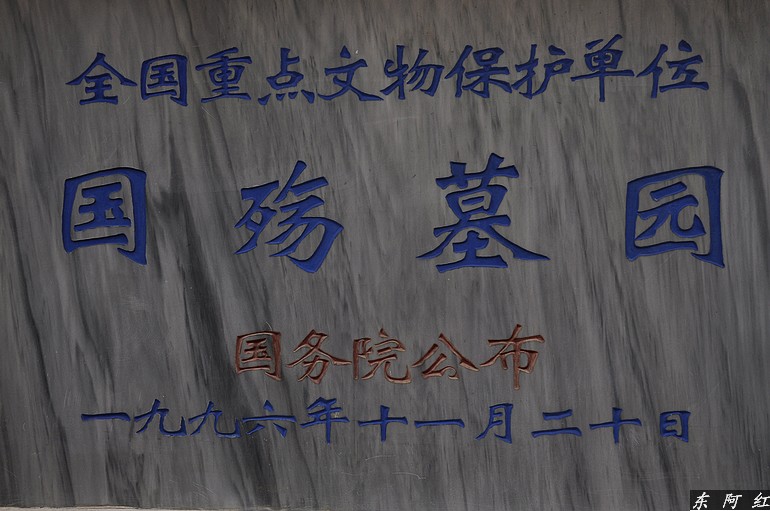 全国重点文物保护单位
国殇墓园
国务院公布
一九九六年十一月二十日
东阿红